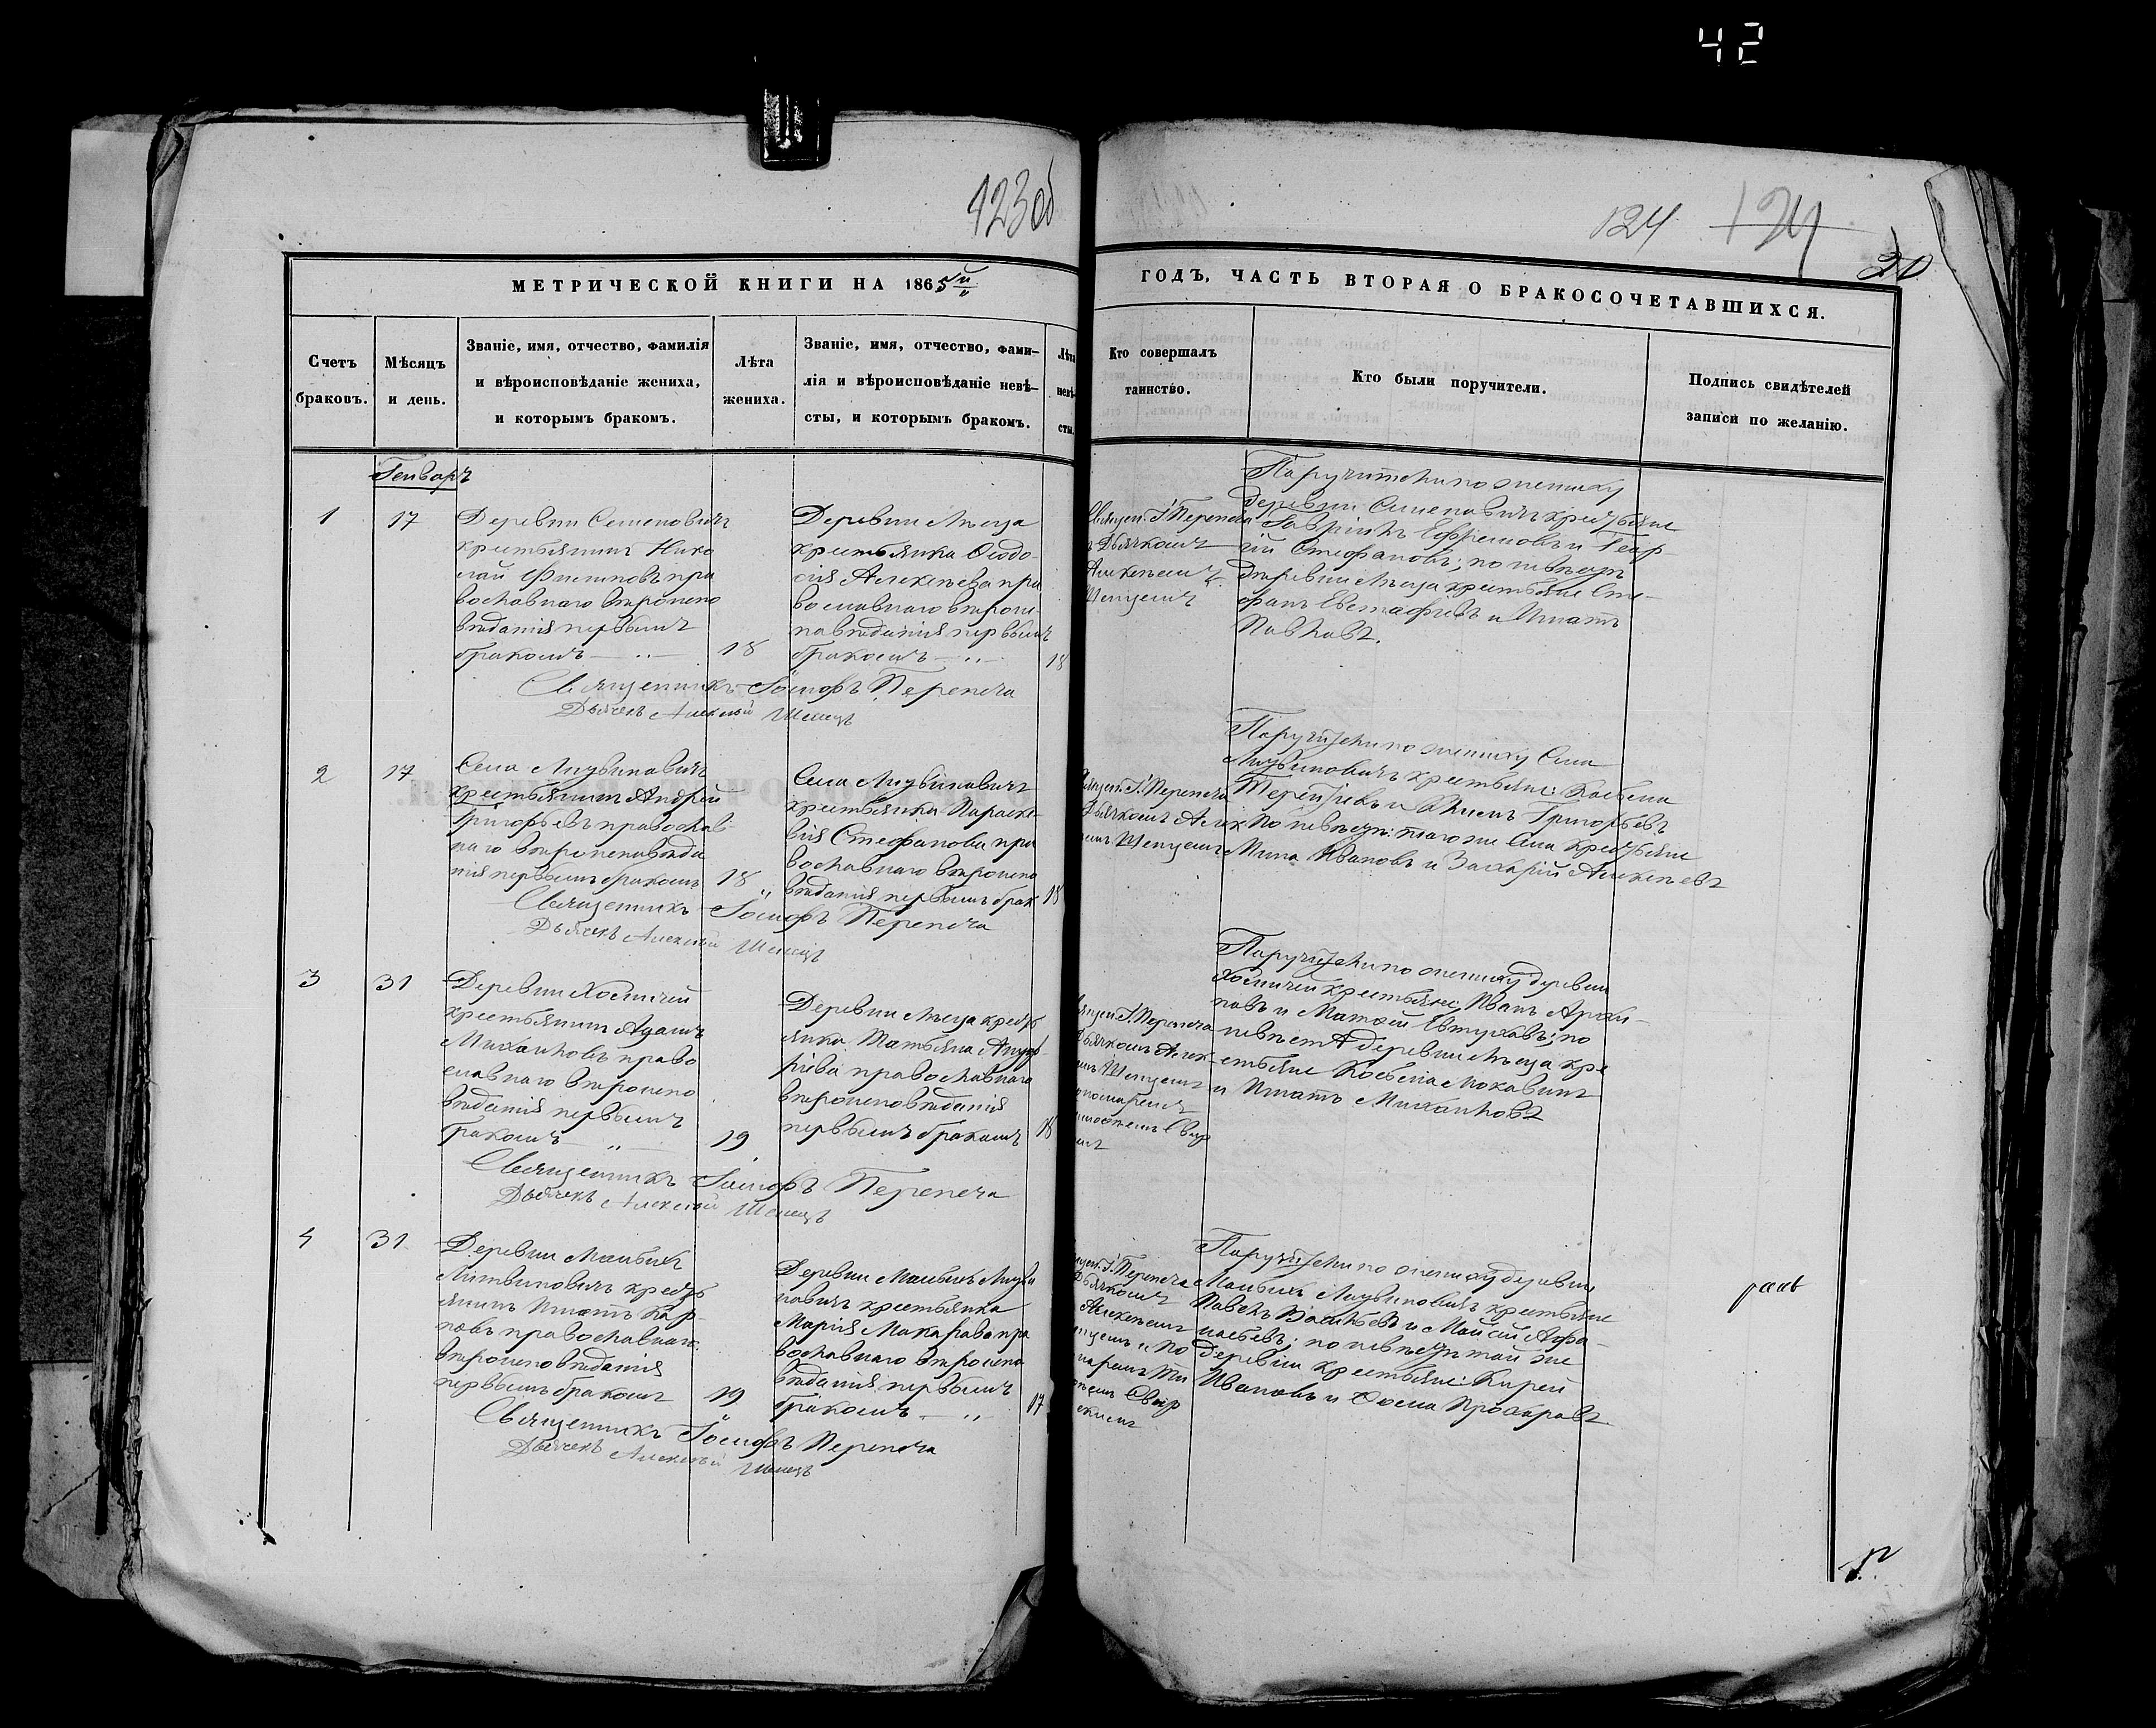 42
123об
124 124
20
МЕТРИЧЕСКОЙ КНИГИ НА 1865й
ГОДЪ, ЧАСТЬ ВТОРАЯ О БРАКОСОЧЕТАВШИХСЯ.
Счетъ
браковъ.
Мѣсяцъ
и день.
Званіе, имя, отчество, фамилія
и вѣроисповѣданіе жениха,
и которымъ бракомъ.
Лѣта
жениха.
Званіе, имя, отчество, фами–
лія и вѣроисповѣданіе невѣ–
сты, и которымъ бракомъ.
Лѣта
невѣ-
сты.
Кто совершалъ
таинство.
Кто были поручители.
Подпись свидѣтелей
записи по желанію.
Генварь
1
17
Деревни Семеновичъ
крестьянинъ Нико
лай Филиповъ пра
вославнаго вѣроиспо
вѣданія первымъ
бракомъ
18
Деревни
крестьянка Ѳеодо-
сія Алексѣева пра
вославнаго вѣроис-
повѣданія первымъ
бракомъ
18
Священ. І. Перепеча
Дьячкомъ
Алексѣемъ
Шепуемъ
Поручители по жениху
деревни Семеновичъ крестьяне
Гавріилъ Ефремовъ и Геор-
гій Стефановъ; по невѣстѣ
деревни крестьяне Сте-
фанъ Евстафіевъ и Игнатъ
Павловъ.
Священникъ Іосифъ Перепеча
Дьячекъ Алексѣй
2
17
Села Литвиновичъ
крестьянинъ Андрей
Григорьевъ православ-
наго вѣроисповѣда
нія первымъ бракомъ
18
Села Литвиновичъ
крестьянка Параске-
вія Стефанова пра
вославнаго вѣроиспо
вѣданія первымъ брак
18
Священ. І. Перепеча
Дьячкомъ Алек
Шепуемъ
Поручители по жениху Села
Литвиновичъ крестьяне: Косьма
Терентіевъ и Григорьевъ
по невѣстѣ: того же Села крестьяне
Мина Ивановъ и Захарій Алексѣевъ
Священникъ Іосифъ Перепеча
Дьячекъ Алексѣй
3
31
Деревни
крестьянинъ Адамъ
Михаиловъ право
славнаго вѣроиспо
вѣданія первымъ
бракомъ
19
Деревни крестъ
янка Татьяна
православнаго
вѣроисповѣданія
первымъ бракомъ
18
І. Перепеча
Дьячкомъ Алек-
Шепуемъ
Поручители по жениху деревни
крестьяне: Иванъ
и Матѳей Евтуховъ; по
невѣстѣ деревни кре
стьяне Косьма
и Игнатъ Михаиловъ
Священникъ Іосифъ Перепеча
Дьячекъ Алексѣй
4
31
Деревни Малыхъ
Литвиновичъ кресть
янинъ Игнатъ Кар-
повъ православнаго
вѣроисповѣданія
первымъ бракомъ
19
Деревни Малыхъ Литви
новичъ крестьянка
Марія Макарова пра
вославнаго вѣроиспо
вѣданія первымъ
бракомъ
17
І. Перепеча
Дьячкомъ
Алексѣемъ
Поручители по жениху деревни
Малыхъ Литвиновичъ крестьяне
Павелъ Васильевъ и Моисей Афа-
насьевъ; по невѣстѣ той же
деревни крестьяне: Кирей
Ивановъ и Ѳома Прохоровъ
Священникъ Іосифъ Перепеча
Дьячекъ Алексѣй